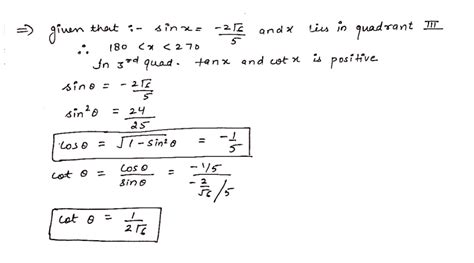 ⇒ given that :- sin x = -2√6/5 and x lies in quadrant III
∴ 180 < x < 270
In 3rd quad. tan x and cot x is positive
sin θ = -2√6/5
sin²θ = 24/25
cos θ = √1 - sin²θ = -1/5
cot θ = cos θ/sin θ = -1/5 / -2/√6/5
cot θ = 1/2√6